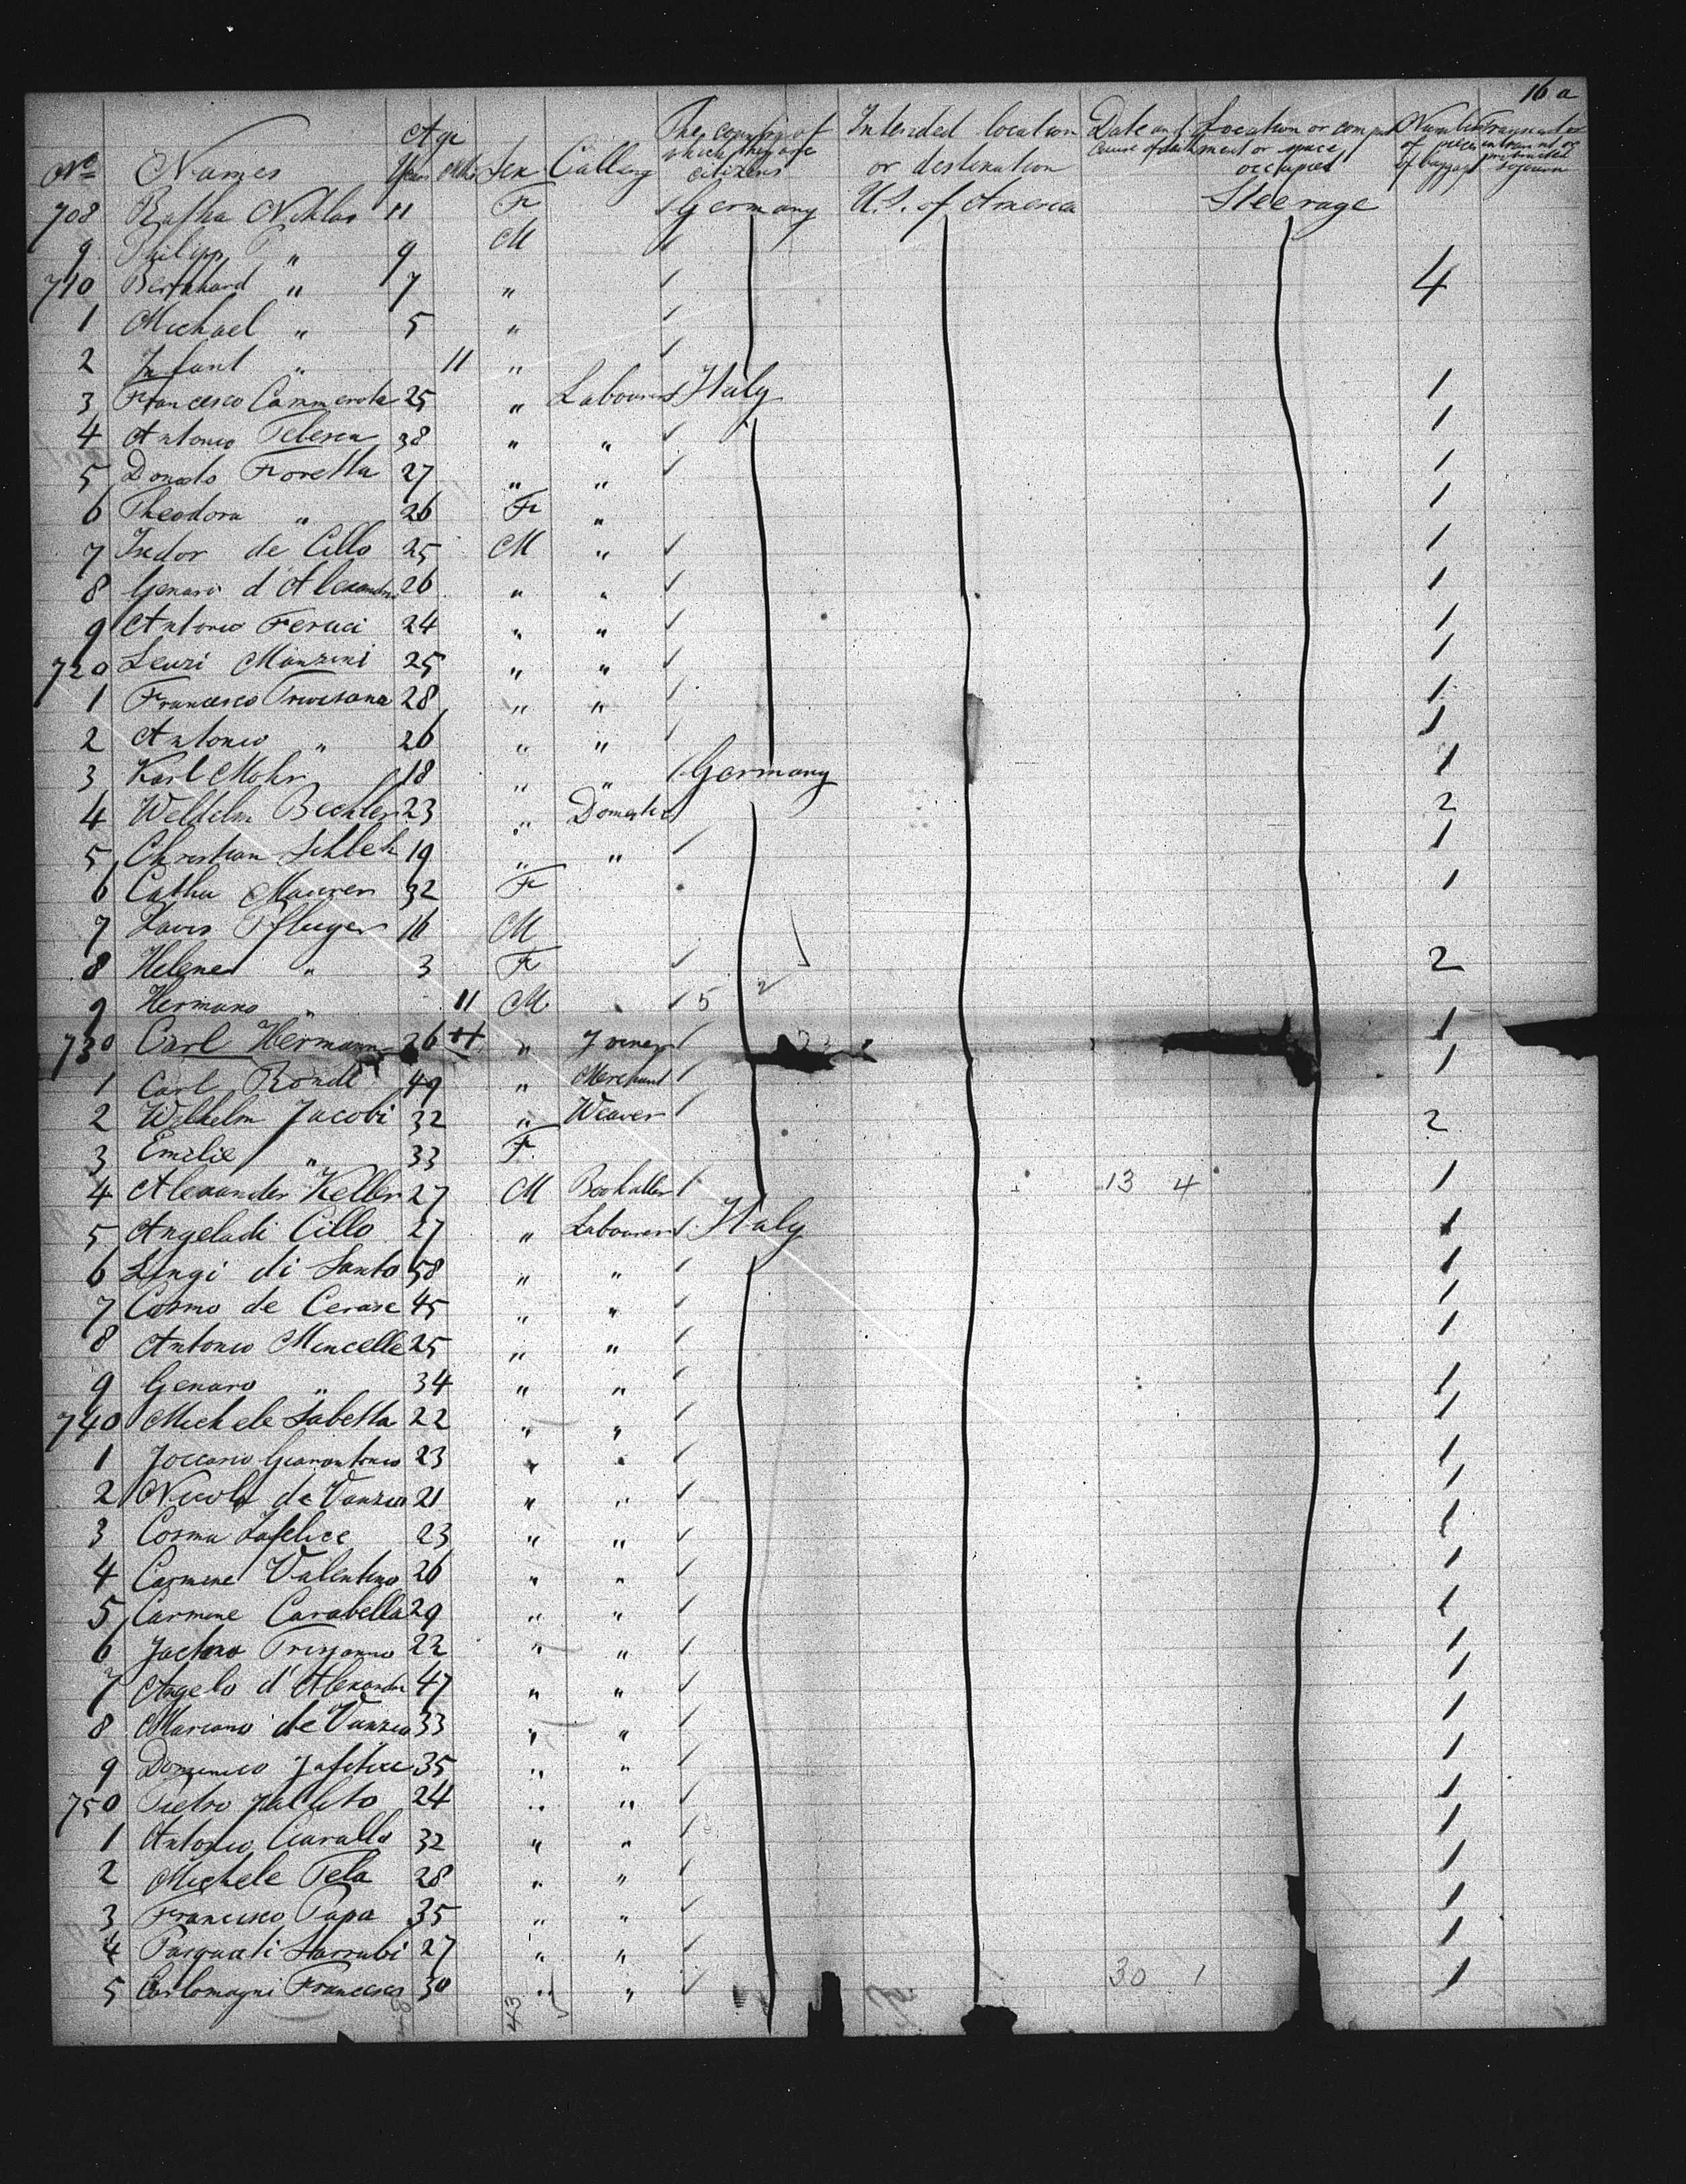 16 a
No Names Age Years Mths Sex Calling The country of which they are citizens Intended location or destination Date and cause of death Location or compartment or space occupied Number of pieces of baggage Transient or in transit or protracted sojourn
708 Niklas 11 F Germany U.S. of America Steerage
9 Philipp " 9 M
710 Bernhard " 7 " 4
1 Michael " 5 "
2 Infant " 11 "
3 Francesco Cammerota 25 " Labourer Italy 1
4 Antonio Telesca 38 " " 1
5 Donato Foretta 27 " " 1
6 Theodora " 26 F " 1
7 Isidor de Cillo 25 M " 1
8 Genaro d'Alexandro 26 " " 1
9 Antonio Feruci 24 " " 1
720 Manzini 25 " " 1
1 Francesco Trivisana 28 " " 1
2 Antonio " 26 " " 1
3 Karl Mohr 18 " " Germany 1
4 Bechler 23 " Domestic 2
5 Christian 19 " " 1
6 Catha Maurer 32 F 1
7 Pfluger 16 M
8 Helene " 3 F 2
9 Hermann " 11 M 5
730 Carl Hermann 26 " Joiner 1
1 Carl 49 " Merchant 1
2 Wilhelm Jacobi 32 " Weaver 2
3 Emilie " 33 F
4 Alexander Keller 27 M 13 4 1
5 Angeladi Cillo 27 " Labourer Italy 1
6 Lingi di Santo 58 " " 1
7 Cosmo de Cerase 45 " " 1
8 Antonio Mincelle 25 " " 1
9 Genaro " 34 " " 1
740 Michele Sabetta 22 " " 1
1 23 " " 1
2 Nicola de Vanzio 21 " " 1
3 Cosma Jafelice 23 " " 1
4 Carmine Valentino 26 " " 1
5 Carmine Carabella 29 " " 1
6 22 " " 1
7 Angelo d'Alexandro 47 " " 1
8 Mariano de Vanzio 33 " " 1
9 Domenico Jafelice 35 " " 1
750 Pietro 24 " " 1
1 Antonio Ciarallo 32 " " 1
2 Michele Tela 28 " " 1
3 Francesco Papa 35 " " 1
4 27 " " 1
5 Carlomagni Francesco 30 " " 30 1 1
43